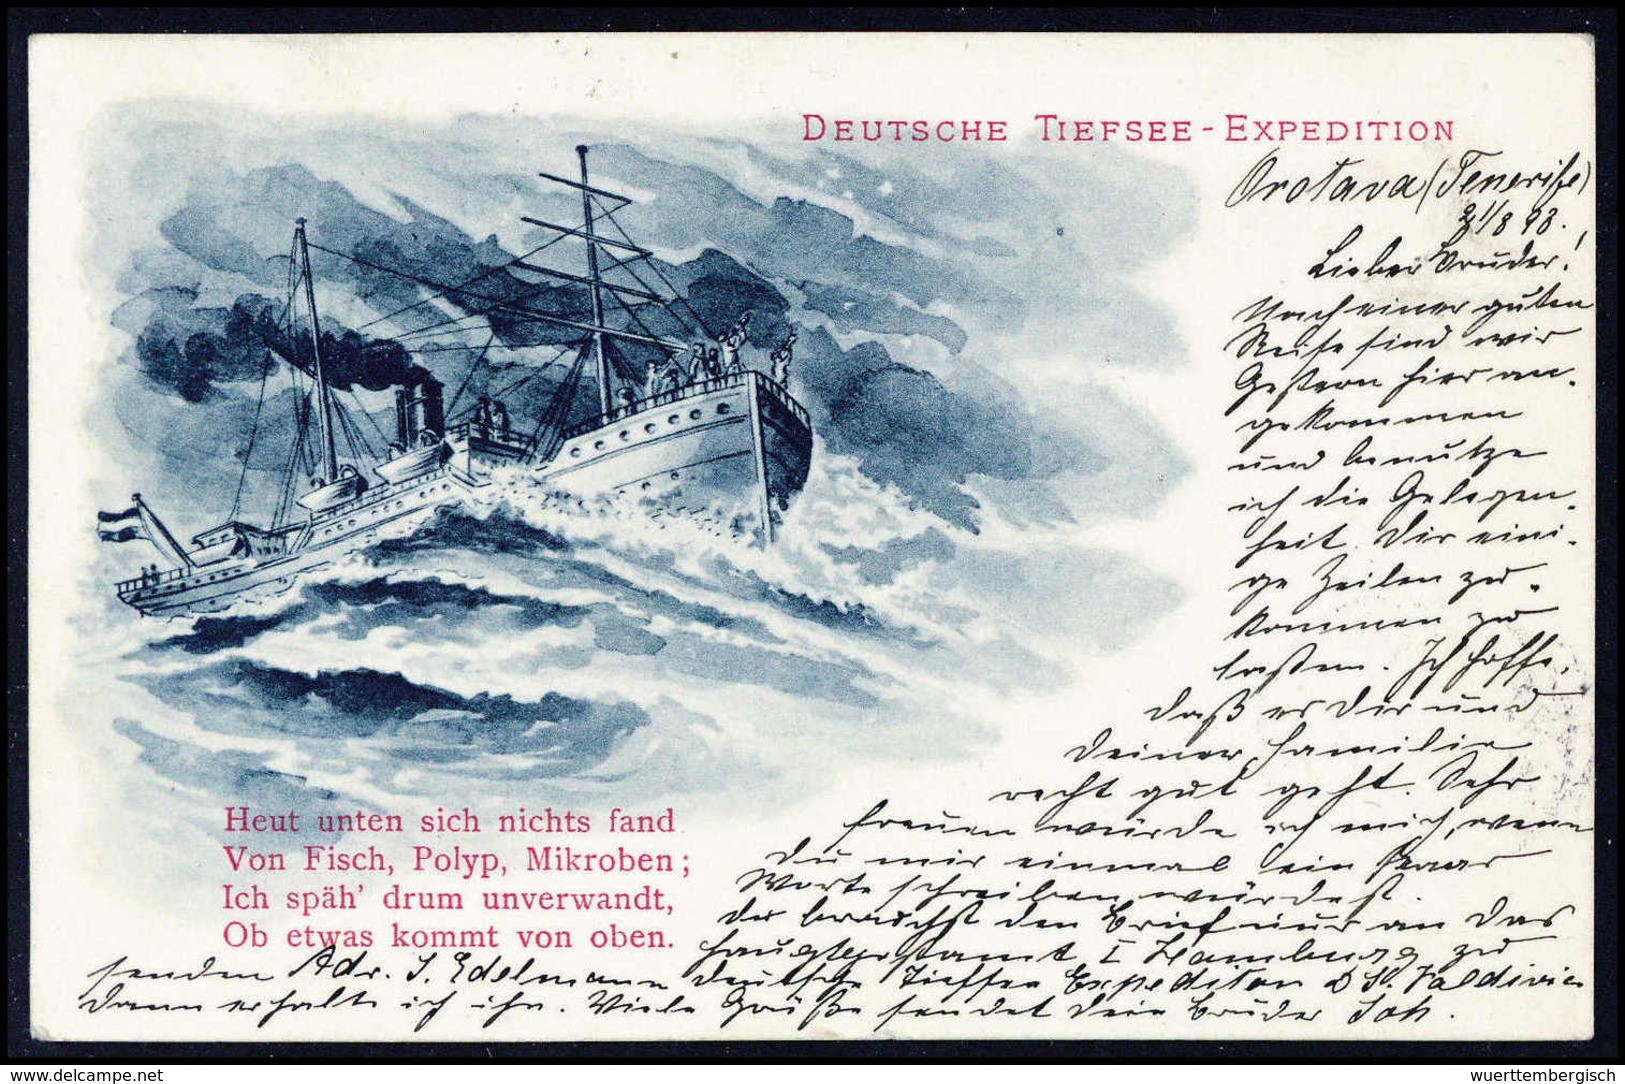 DEUTSCHE TIEFSEE-EXPEDITION
Orotava (Tenerife)
21/8 98.
Lieber Bruder!
Nach einer guten
Reise sind wir
Gestern hier an-
gekommen
und benutze
ich die Gelegen-
heit Dir eini-
ge Zeilen zu-
kommen zu
laßen. Ich hoffe,
daß es Dir und
Deiner Familie
recht gut geht. Sehr
freuen würde ich mich, wenn
Du mir einmal ein Paar
Worte schreiben würdest.
Du brauchst den Brief nur an das
Hauptpostamt I Hamburg zu
Heut unten sich nichts fand
Von Fisch, Polyp, Mikroben;
Ich späh' drum unverwandt,
Ob etwas kommt von oben.
senden Adr. J. Edelmann Deutsche Tiefsee Expedition D. S. Valdivia
dann erhalte ich ihn. Viele Grüße sendet Dein Bruder Joh.
www.delcampe.net
wuerttembergisch